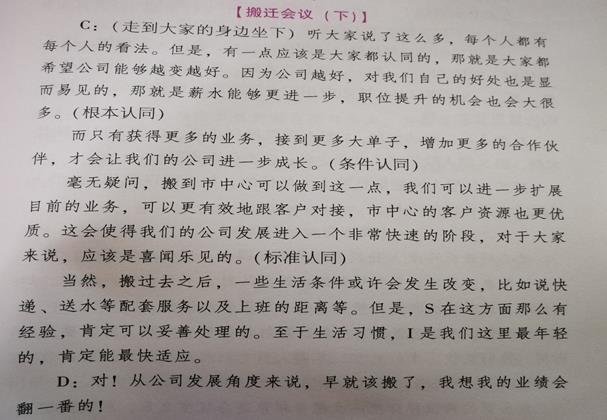 【搬迁会议(下)】
C:(走到大家的身边坐下)听大家说了这么多,每个人都有
每个人的看法。但是,有一点应该是大家都认同的,那就是大家都
希望公司能够越变越好。因为公司越好,对我们自己的好处也是显
而易见的,那就是薪水能够更进一步,职位提升的机会也会大很
多。(根本认同)
而只有获得更多的业务,接到更多大单子,增加更多的合作伙
伴,才会让我们的公司进一步成长。(条件认同)
毫无疑问,搬到市中心可以做到这一点,我们可以进一步扩展
目前的业务,可以更有效地跟客户对接,市中心的客户资源也更优
质。这会使得我们的公司发展进入一个非常快速的阶段,对于大家
来说,应该是喜闻乐见的。(标准认同)
当然,搬过去之后,一些生活条件或许会发生改变,比如说快
递、送水等配套服务以及上班的距离等。但是,S在这方面那么有
经验,肯定可以妥善处理的。至于生活习惯,I是我们这里最年轻
的,肯定能最快适应。
D:对!从公司发展角度来说,早就该搬了,我想我的业绩会
翻一番的!